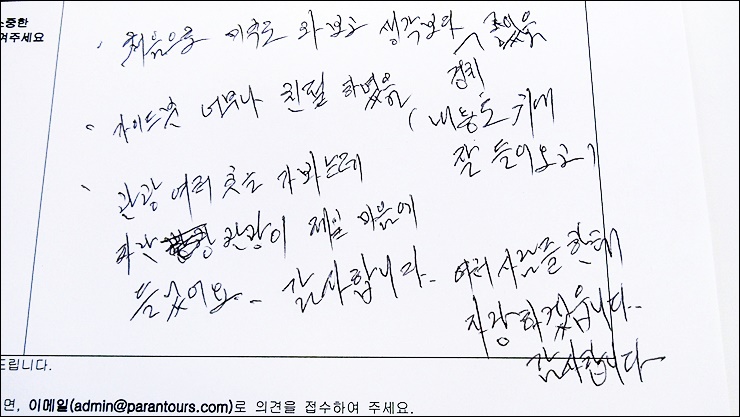 소중한
여주세요
· 처음으로 미국로 와보고 생각보다 경치 좋았음
· 가이드분 너무나 친절하였음 (
내 등도 귀에
잘 들어오고)
· 관광 여러 곳을 가봤는데
파란 관광이 제일 마음에
들었어요. 감사합니다.
여러 사람들한테
자랑하겠습니다..
감사합니다
드립니다.
면, 이메일(admin@parantours.com)로 의견을 접수하여 주세요.